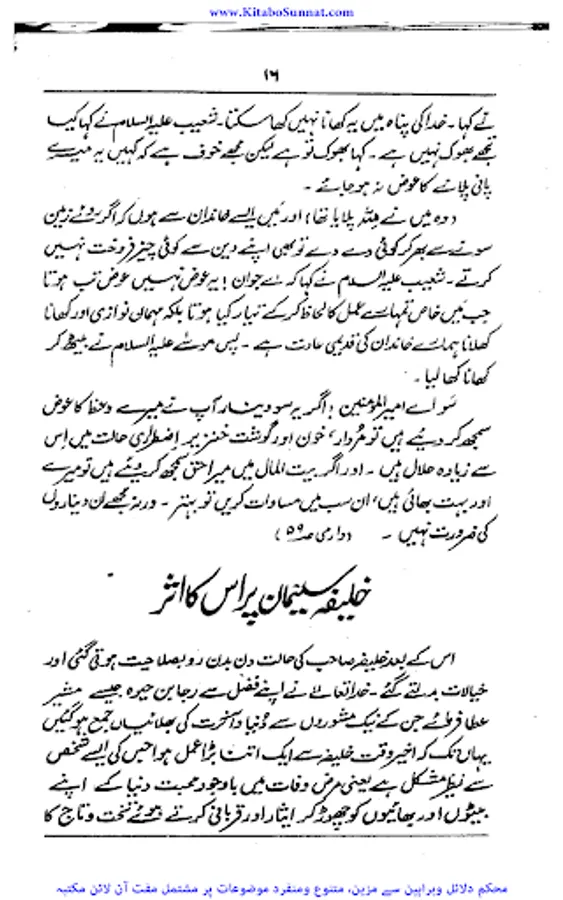 www.KitaboSunnat.com
١٦
نے کہا۔ خدا کی پناہ میں یہ کھانا نہیں کھا سکتا۔ شعیب علیہ السلام نے کہا کیا
تجھے بھوک نہیں ہے۔ کہا بھوک تو ہے لیکن مجھے خوف ہے کہ کہیں یہ میرے
پانی پلانے کا عوض نہ ہو جائے۔
(وہ میں نے للہ پلایا تھا) اور میں ایسے خاندان سے ہوں کہ اگر روئے زمین
سونے سے بھر کر کوئی دے دے تو بھی اپنے دین سے کوئی چیز فروخت نہیں
کرتے۔ شعیب علیہ السلام نے کہا کہ اے جوان! یہ عوض نہیں عوض تب ہوتا
جب میں خاص تمہارے عمل کا لحاظ کر کے تیار کیا ہوتا بلکہ مہمان نوازی اور کھانا
کھلانا ہمارے خاندان کی قدیمی عادت ہے۔ پس موسےٰ علیہ السلام نے بیٹھ کر
کھانا کھا لیا۔
سو اے امیر المؤمنین! اگر یہ سو دینار آپ نے میرے وعظ کا عوض
سمجھ کر دیئے ہیں تو مُردار، خون اور گوشت خنزیر اضطراری حالت میں اس
سے زیادہ حلال ہیں۔ اور اگر بیت المال میں میرا حق سمجھ کر دیئے ہیں تو میرے
اور بہت بھائی ہیں، ان سب میں مساوات کریں تو بہتر۔ ورنہ مجھے ان دیناروں
کی ضرورت نہیں۔ (دارمی صہ ٥٩)
خلیفہ سلیمان پر اس کا اثر
اس کے بعد خلیفہ صاحب کی حالت دن بدن روبصلاحیت ہوتی گئی اور
خیالات بدلتے گئے۔ خدا تعالےٰ نے اپنے فضل سے رجا بن حیوہ جیسے مشیر
عطا فرمائے جن کے نیک مشوروں سے دُنیا و آخرت کی بھلائیاں جمع ہو گئیں
یہاں تک کہ اخیر وقت خلیفہ سے ایک اتنا بڑا عمل ہوا جس کی ایسے شخص
سے نظیر مشکل ہے یعنی مرض وفات میں باوجود محبت دنیا کے اپنے
بیٹوں اور بھائیوں کو چھوڑ کر ایثار اور قربانی کرتے ہوئے تخت و تاج کا
محکم دلائل وبراہین سے مزین، متنوع ومنفرد موضوعات پر مشتمل مفت آن لائن مکتبہ